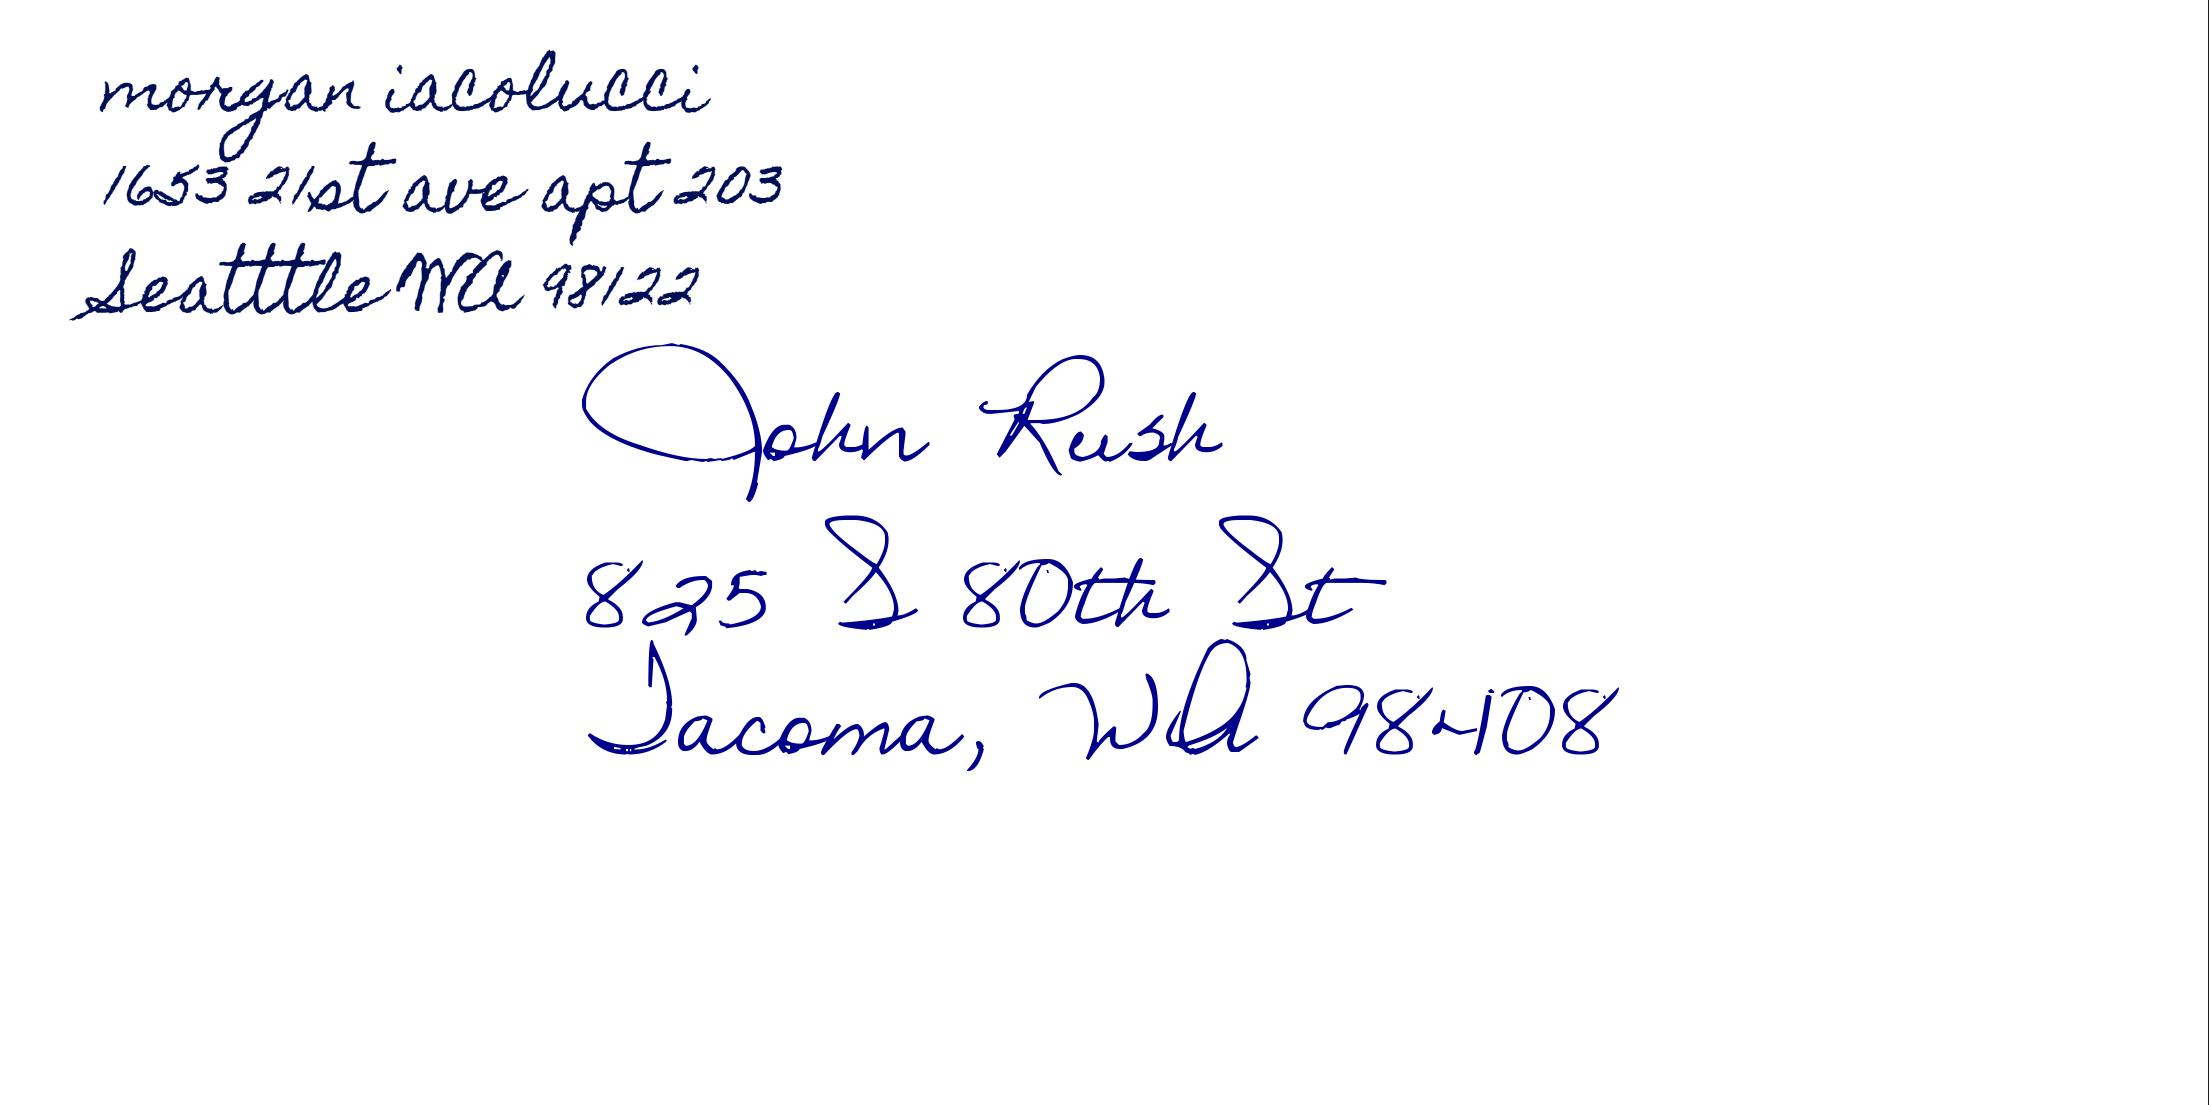 morgan iacolucci
1653 21st ave apt 203
Seatttle WA 98122
John Rush
825 S 80th St
Tacoma, WA 98408